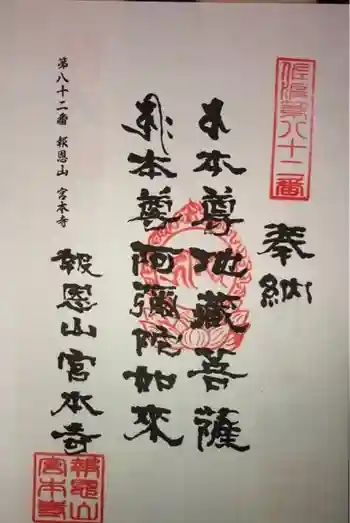 佐渡第八十二番
奉納
本尊地藏菩薩
本尊阿彌陀如來
報恩山宮本寺
第八十二番 報恩山 宮本寺
報恩山
宮本寺